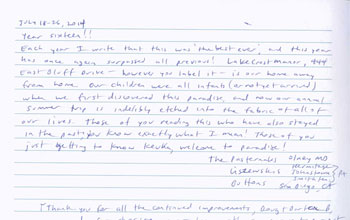 July 18-26, 2014
Year sixteen!!
Each year I write that this was "the best ever", and this year
has once again surpassed all previous! Lake Crest Manor, 444
East Bluff Drive - however you label it - is our home away
from home. Our children were all infants (or not yet arrived)
when we first discovered this paradise, and now our annual
summer trip is indelibly etched into the fabric of all of
our lives. Those of you reading this who have also stayed
in the past, you know exactly what I mean! Those of you
just getting to know Keuka, welcome to paradise!
The Pasternaks Olney MD
Hermitage
Johnstown PA
Buttons San Diego, CA
[Thank you for all the continued improvements, Doug + Darlene